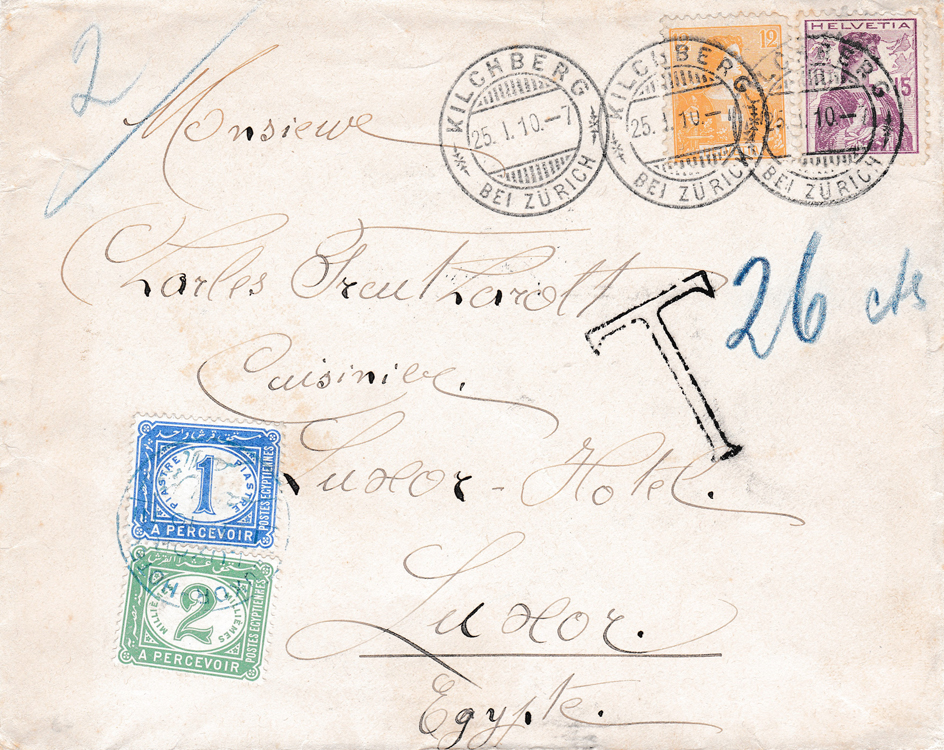 2
HELVETIA
12
15
KILCHBERG
25. I. 10.-7
BEI ZÜRICH
KILCHBERG
25. I. 10.-
BEI ZÜRICH
BEI ZÜRICH
Monsieur
Charles Treuthardt
T
26 cts
Cuisinier.
Luxor-Hotel.
Luxor.
Egypte.
PIASTRE 1 PIASTRE
POSTES EGYPTIENNES
A PERCEVOIR
2
MILLIÈMES
POSTES EGYPTIENNES
A PERCEVOIR